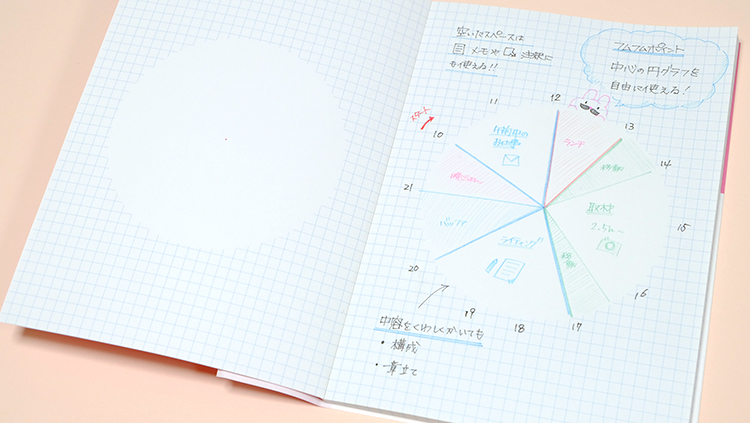 空いたスペースは
メモや 注釈に
も使える!!
フムフムポイント
中心の円グラフを
自由に使える!
スタート
10
11
12
13
14
15
16
17
18
19
20
21
午前中の
ランチ
移動
取材
2.5h〜
移動
ライティング
バッファ
晩ごはん
内容をくわしくかいても
・構成
・章立て